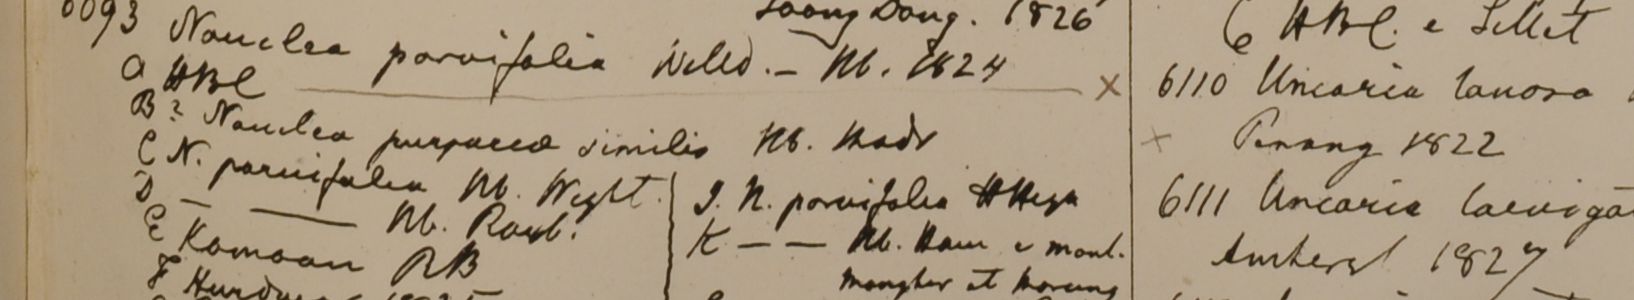 Toong Dong. 1826
6093 Nauclea parvifolia Willd. – Hb. 1824
a HBC
B? Nauclea purpurea similis Hb. Madr
C N. parvifolia Hb. Wight.
D – —— Hb. Roxb.
E Kamaon RB
F Hurdwar 1825
J. N. parvifolia H
K – – Hb. Ham e mont.
Mongher et Morung
C HBC. e Sillet
6110 Uncaria lanosa
Penang 1822
6111 Uncaria laeviga
Amherst 1827